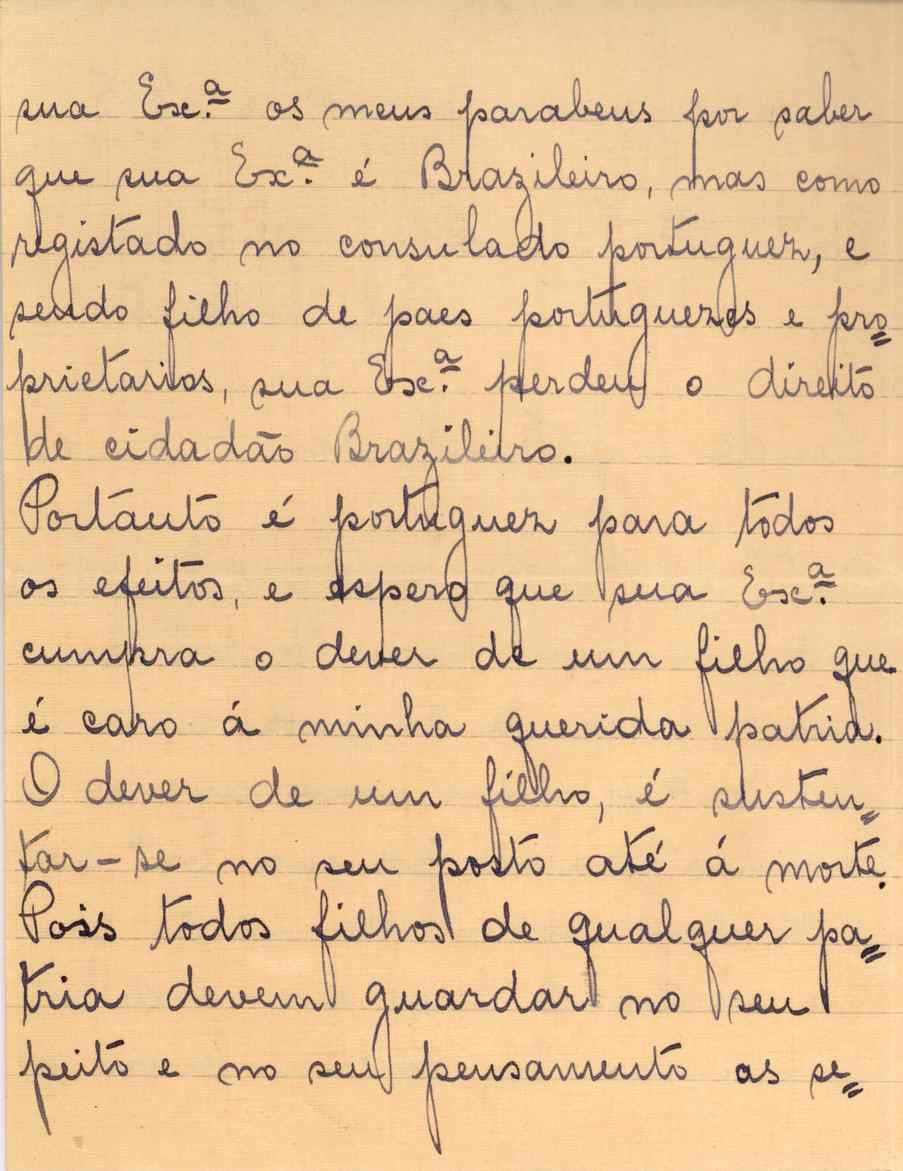 sua Ex.ª os meus parabens por saber
que sua Ex.ª é Brazileiro, mas como
registado no consulado portuguez, e
sendo filho de paes portuguezes e pro=
prietarios, sua Ex.ª perdeu o direito
de cidadão Brazileiro.
Portanto é portuguez para todos
os efeitos, e espero que sua Ex.ª
cumpra o dever de um filho que
é caro á minha querida patria.
O dever de um filho, é susten=
tar-se no seu posto até á morte.
Pois todos filhos de qualquer pa=
tria devem guardar no seu
peito e no seu pensamento as se=